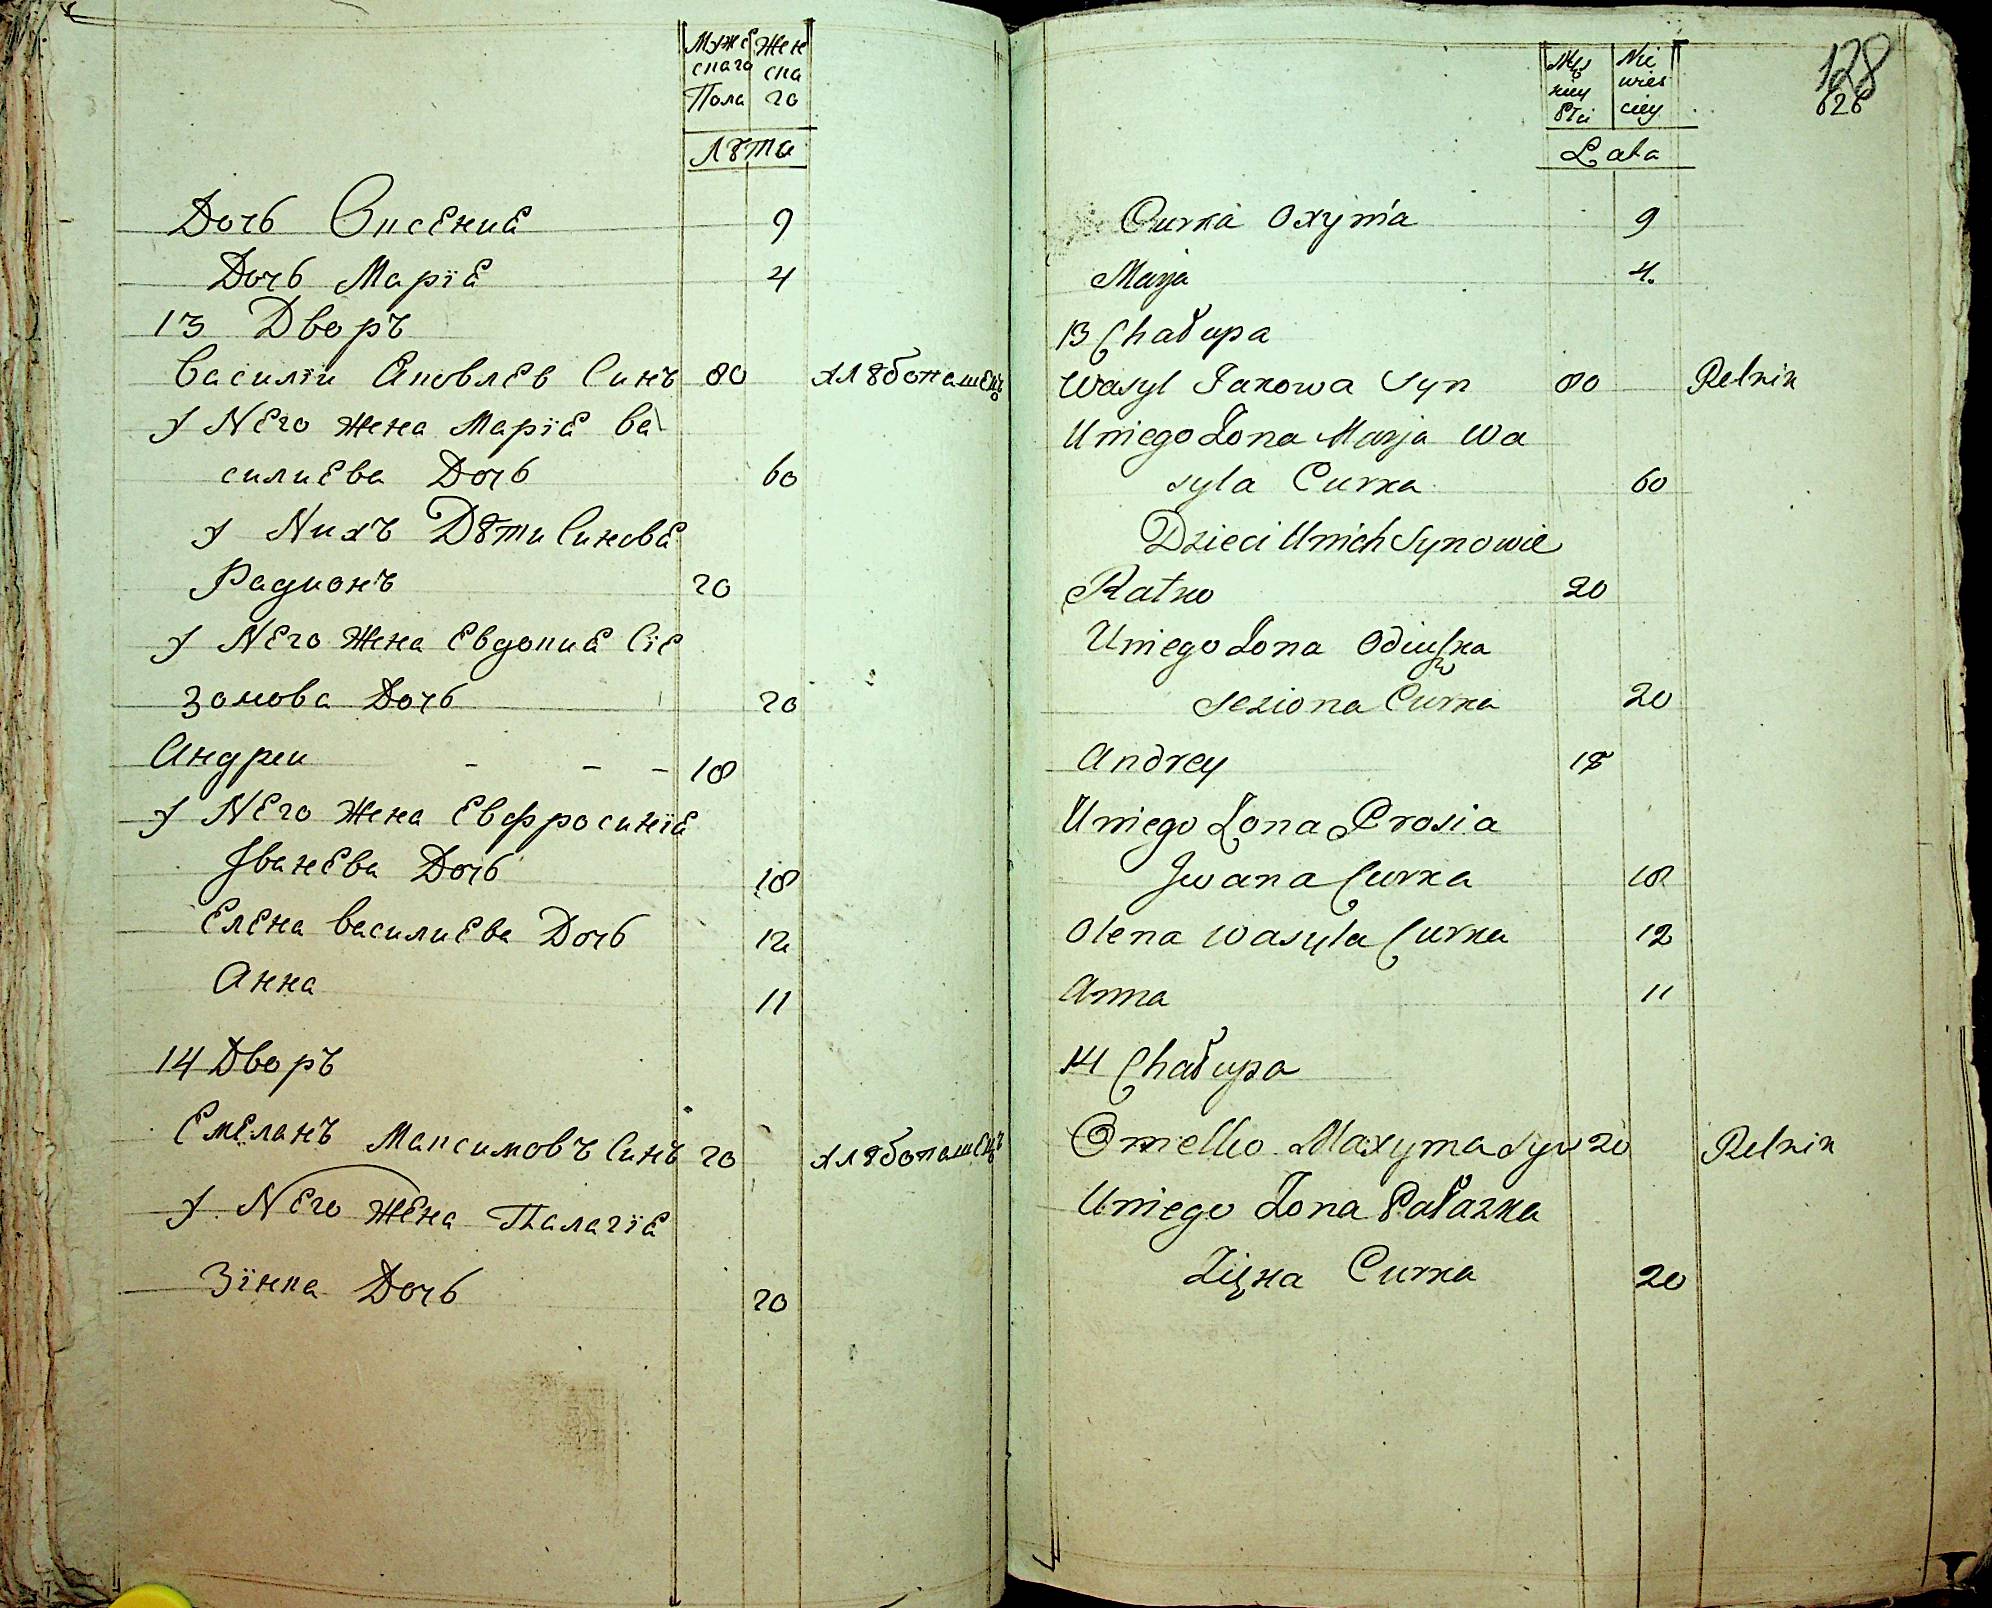 Муже Жен
скаго ска
Пола го
Лѣта
Дочь Ѡксение 9
Дочь Марїе 4
13 Дворъ
Василїи Яковлев Синъ 80 хлѣбопашецъ
У Него жена Марїе Ва
силиева Дочь 60
У Нихъ Дѣти Синове
Радионъ 20
У Него Жена Евдокие Сїе
зонова Дочь 20
Андреи - - - 18
У Него Жена Евфросинїе
Іванева Дочь 18
Елена Василиева Дочь 12
Анна 11
14 Дворъ
Емеланъ Максимовъ Синъ 20 хлѣбопашецъ
У Него Жена Палагїе
Зїнка Дочь 20
128
626
Męz Nie
kiey wies
ciey
Lata
Curka Oxymia 9
Marja 4.
13 Chałupa
Wasyl Jakowa Syn 80 Relnik
U niego Zona Marja Wa
syla Curka 60
Dzieci U nich Synowie
Ratko 20
U niego Zona Odiuszka
Seziona Curka 20
Andrey 18
U niego Zona Prosia
Jwana Curka 18
Olena Wasyla Curka 12
Anna 11
14 Chałupa
Omelko Maxyma Syn 20 Relnik
U niego Zona Pałazka
Curka 20